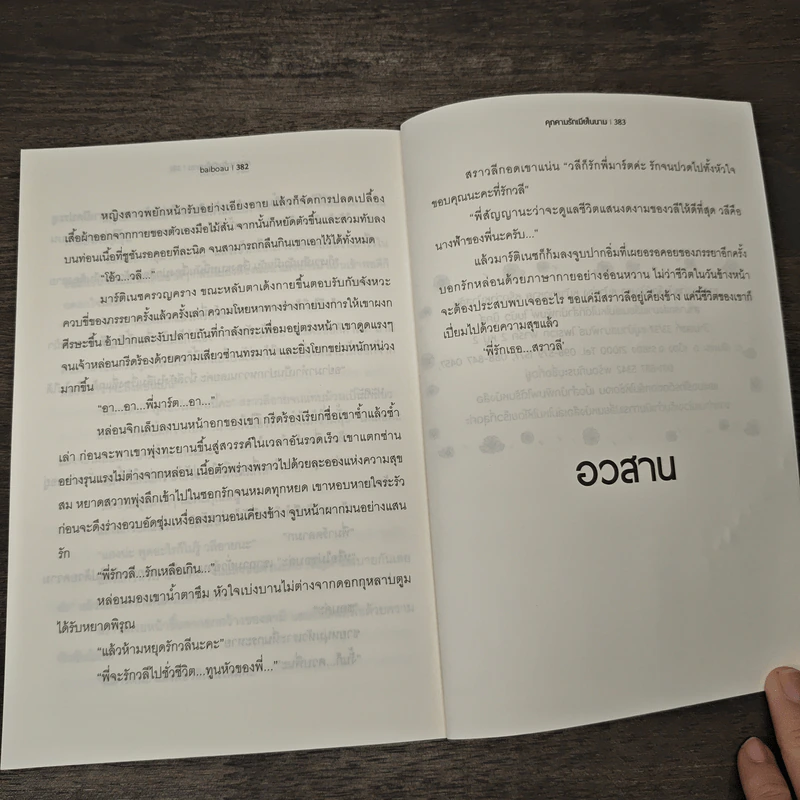 baiboau | 382
หญิงสาวพยักหน้ารับอย่างเอียงอาย แล้วก็จัดการปลดเปลื้อง
เสื้อผ้าออกจากกายของตัวเองมือไม้สั่น จากนั้นก็หยัดตัวขึ้นและสวมทับลง
บนท่อนเนื้อที่ชูชันรอคอยทีละนิด จนสามารถกลืนกินเขาเอาไว้ได้ทั้งหมด
“โอ้ว...วลี...”
มาร์ติเนซครวญคราง ขณะหลับตาเด้งกายขึ้นตอบรับกับจังหวะ
ควบขี่ของภรรยาครั้งแล้วครั้งเล่า ความโหยหาทางร่างกายบงการให้เขาผงก
ศีรษะขึ้น อ้าปากและงับปลายถันที่กำลังกระเพื่อมอยู่ตรงหน้า เขาดูดแรงๆ
จนเจ้าหล่อนกรีดร้องด้วยความเสียวซ่านทรมาน และยิ่งโยกขย่มหนักหน่วง
มากขึ้น
“อา...อา...พี่มาร์ต...อา...”
หล่อนจิกเล็บลงบนหน้าอกของเขา กรีดร้องเรียกชื่อเขาซ้ำแล้วซ้ำ
เล่า ก่อนจะพาเขาพุ่งทะยานขึ้นสู่สวรรค์ในเวลาอันรวดเร็ว เขาแตกซ่าน
อย่างรุนแรงไม่ต่างจากหล่อน เนื้อตัวพร่างพราวไปด้วยละอองแห่งความสุข
สม หยาดสวาทพุ่งลึกเข้าไปในซอกรักจนหมดทุกหยด เขาหอบหายใจระรัว
ก่อนจะดึงร่างอวบอัดชุ่มเหงื่อลงมานอนเคียงข้าง จูบหน้าผากมนอย่างแสน
รัก
“พี่รักวลี...รักเหลือเกิน...”
หล่อนมองเขาน้ำตาซึม หัวใจเบ่งบานไม่ต่างจากดอกกุหลาบตูม
ได้รับหยาดพิรุณ
“แล้วห้ามหยุดรักวลีนะคะ”
“พี่จะรักวลีไปชั่วชีวิต...ทูนหัวของพี่...”
คุกคามรักเมียในนาม | 383
สราวลีกอดเขาแน่น “วลีก็รักพี่มาร์ตค่ะ รักจนปวดไปทั้งหัวใจ
ขอบคุณนะคะที่รักวลี”
“พี่สัญญานะว่าจะดูแลชีวิตแสนงดงามของวลีให้ดีที่สุด วลีคือ
นางฟ้าของพี่นะครับ...”
แล้วมาร์ติเนซก็ก้มลงจูบปากอิ่มที่เผยอรอคอยของภรรยาอีกครั้ง
บอกรักหล่อนด้วยภาษากายอย่างอ่อนหวาน ไม่ว่าชีวิตในวันข้างหน้า
จะต้องประสบพบเจออะไร ขอแค่มีสราวลีอยู่เคียงข้าง แค่นี้ชีวิตของเขาก็
เปี่ยมไปด้วยความสุขแล้ว
‘พี่รักเธอ...สราวลี’
อวสาน